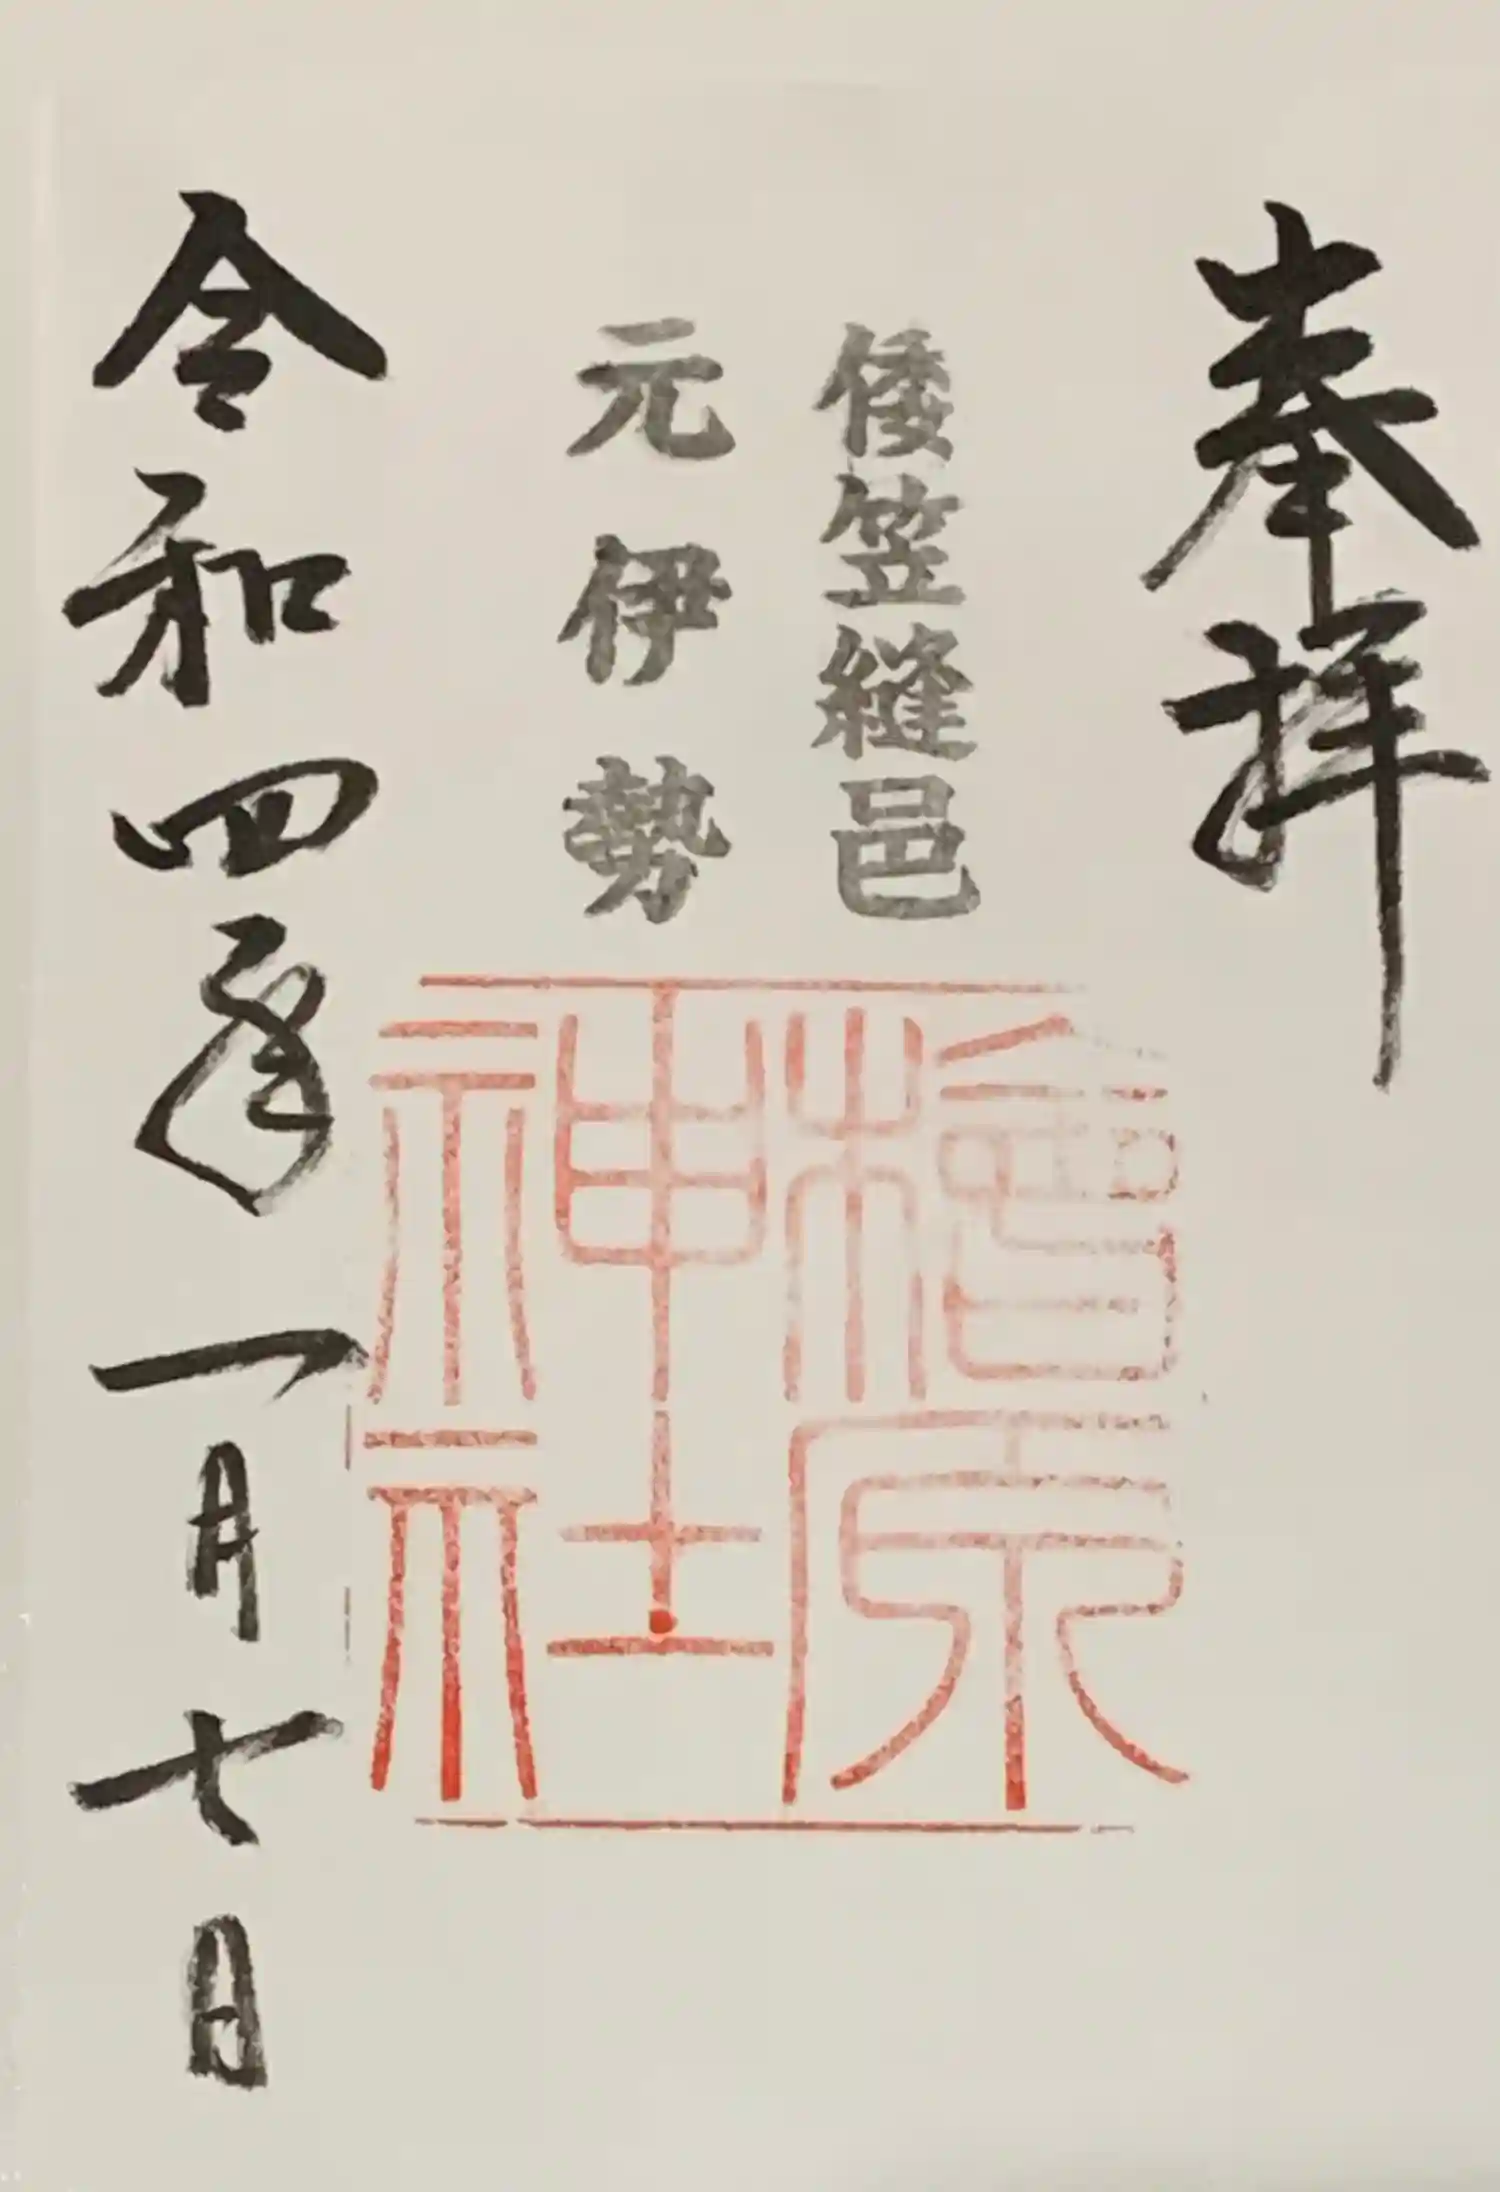 奉拝
倭笠縫邑
元伊勢
檜原神社
令和四年一月七日